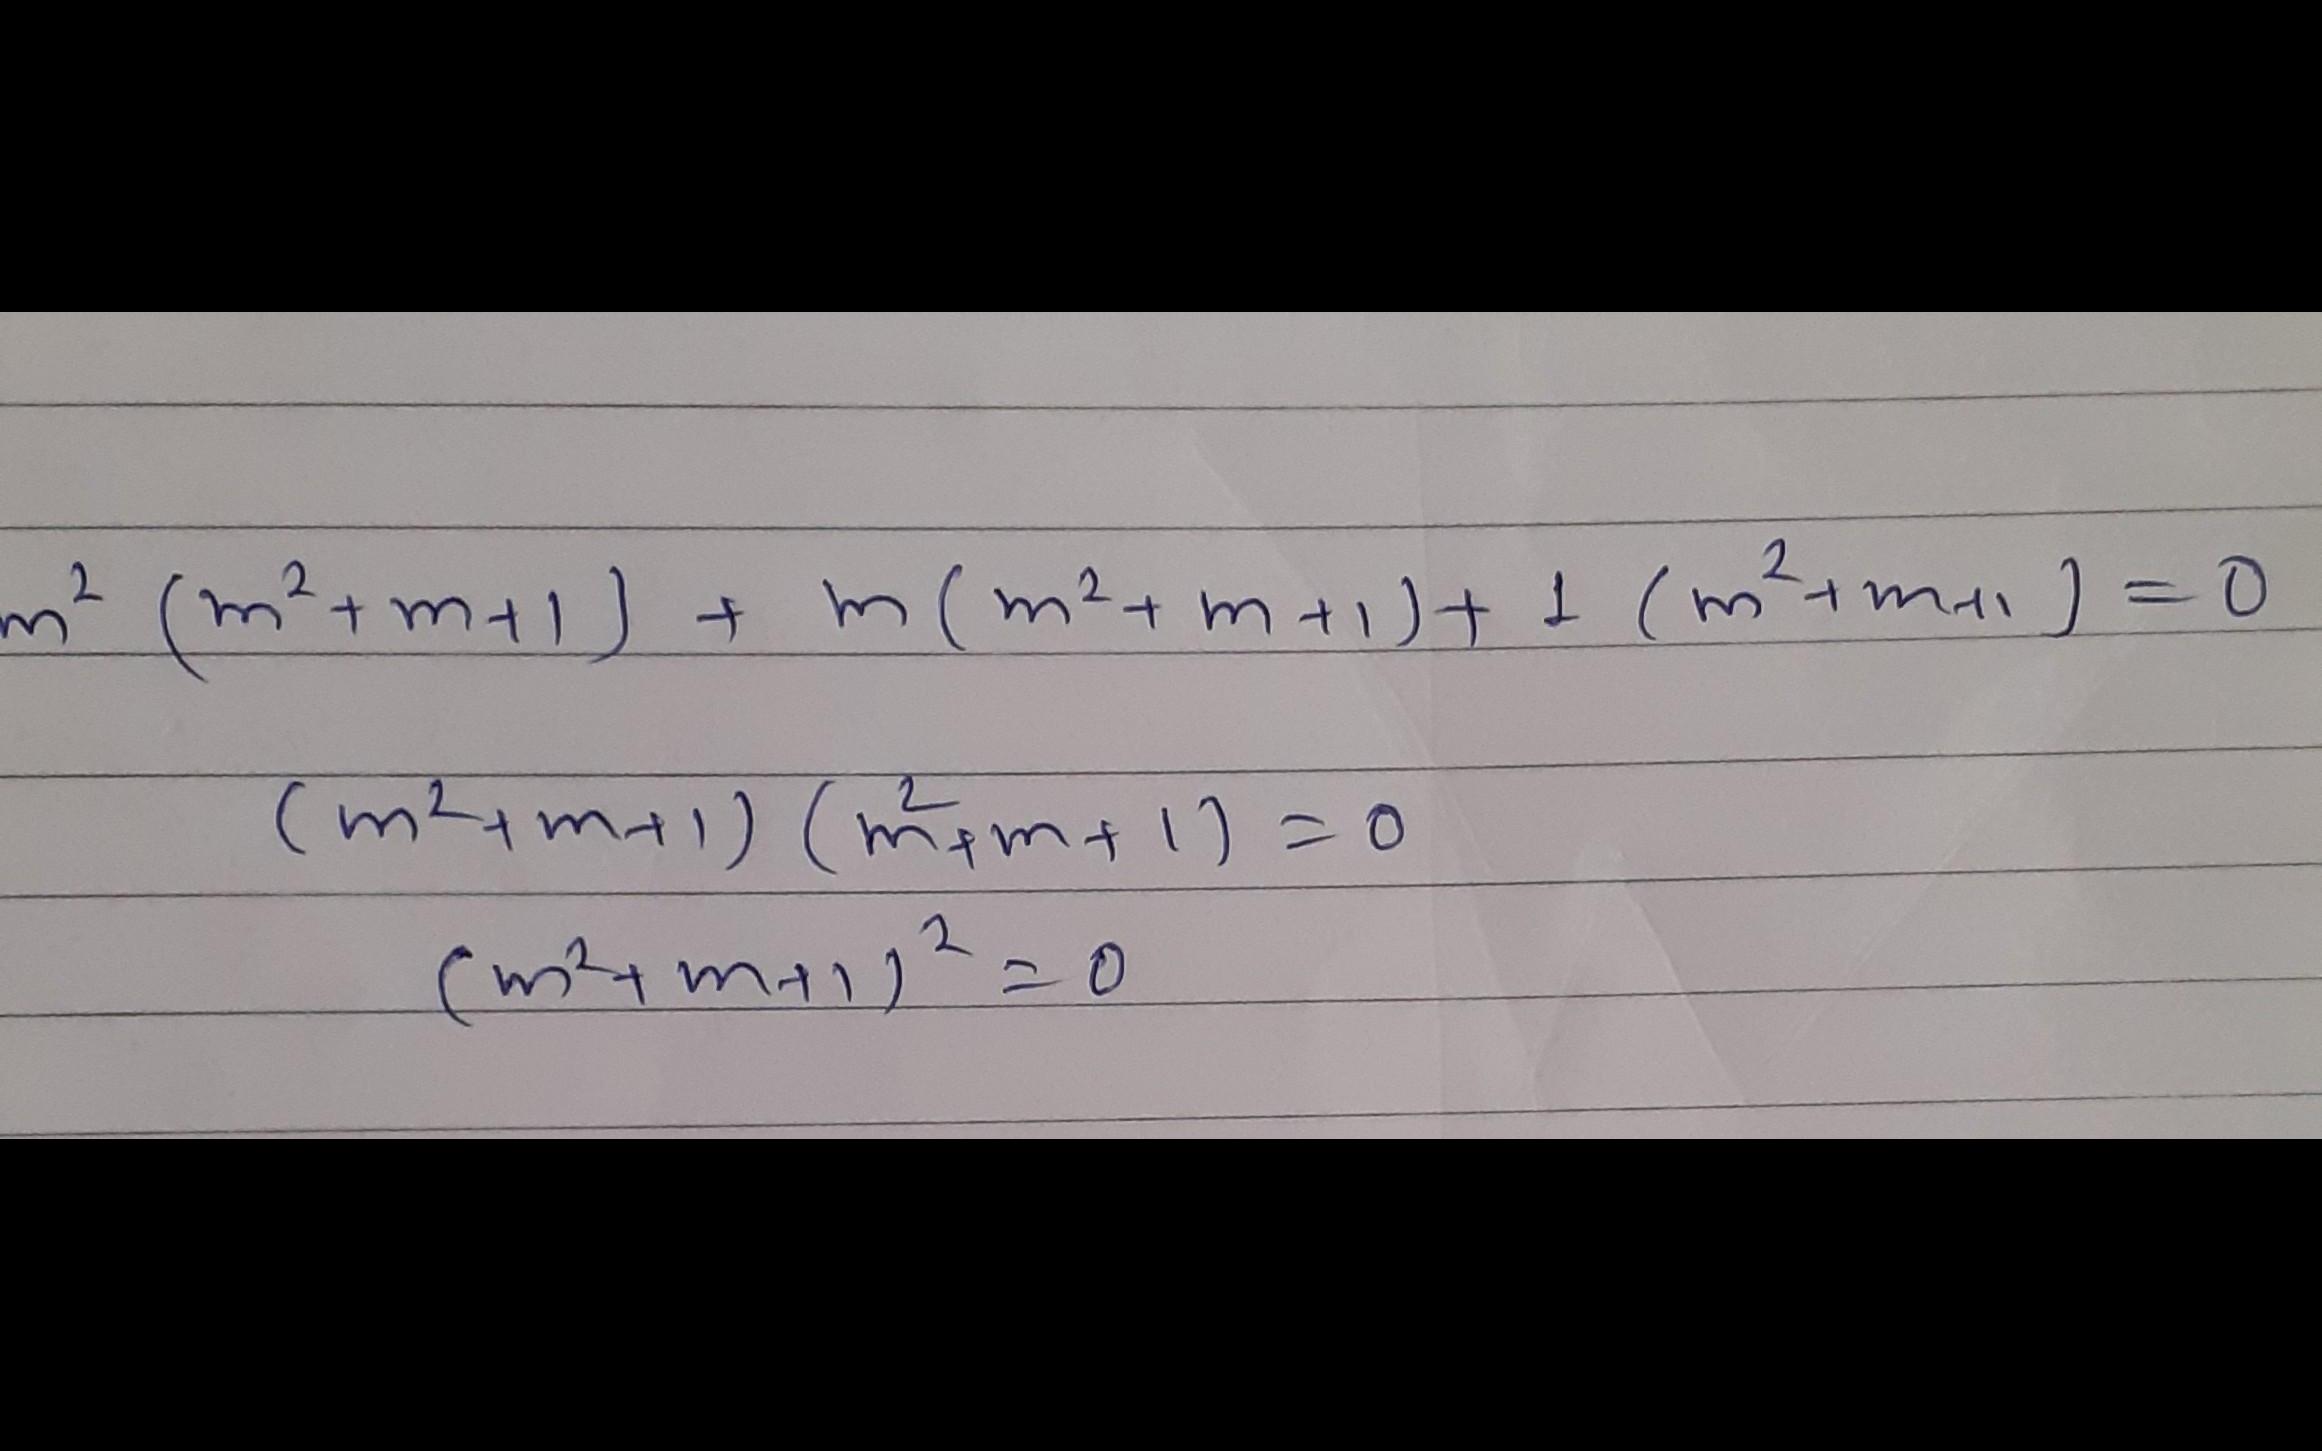 m² (m²+m+1) + m(m²+m+1)+ 1 (m²+m+1) = 0
(m²+m+1) (m²+m+1) = 0
(m²+m+1)² = 0